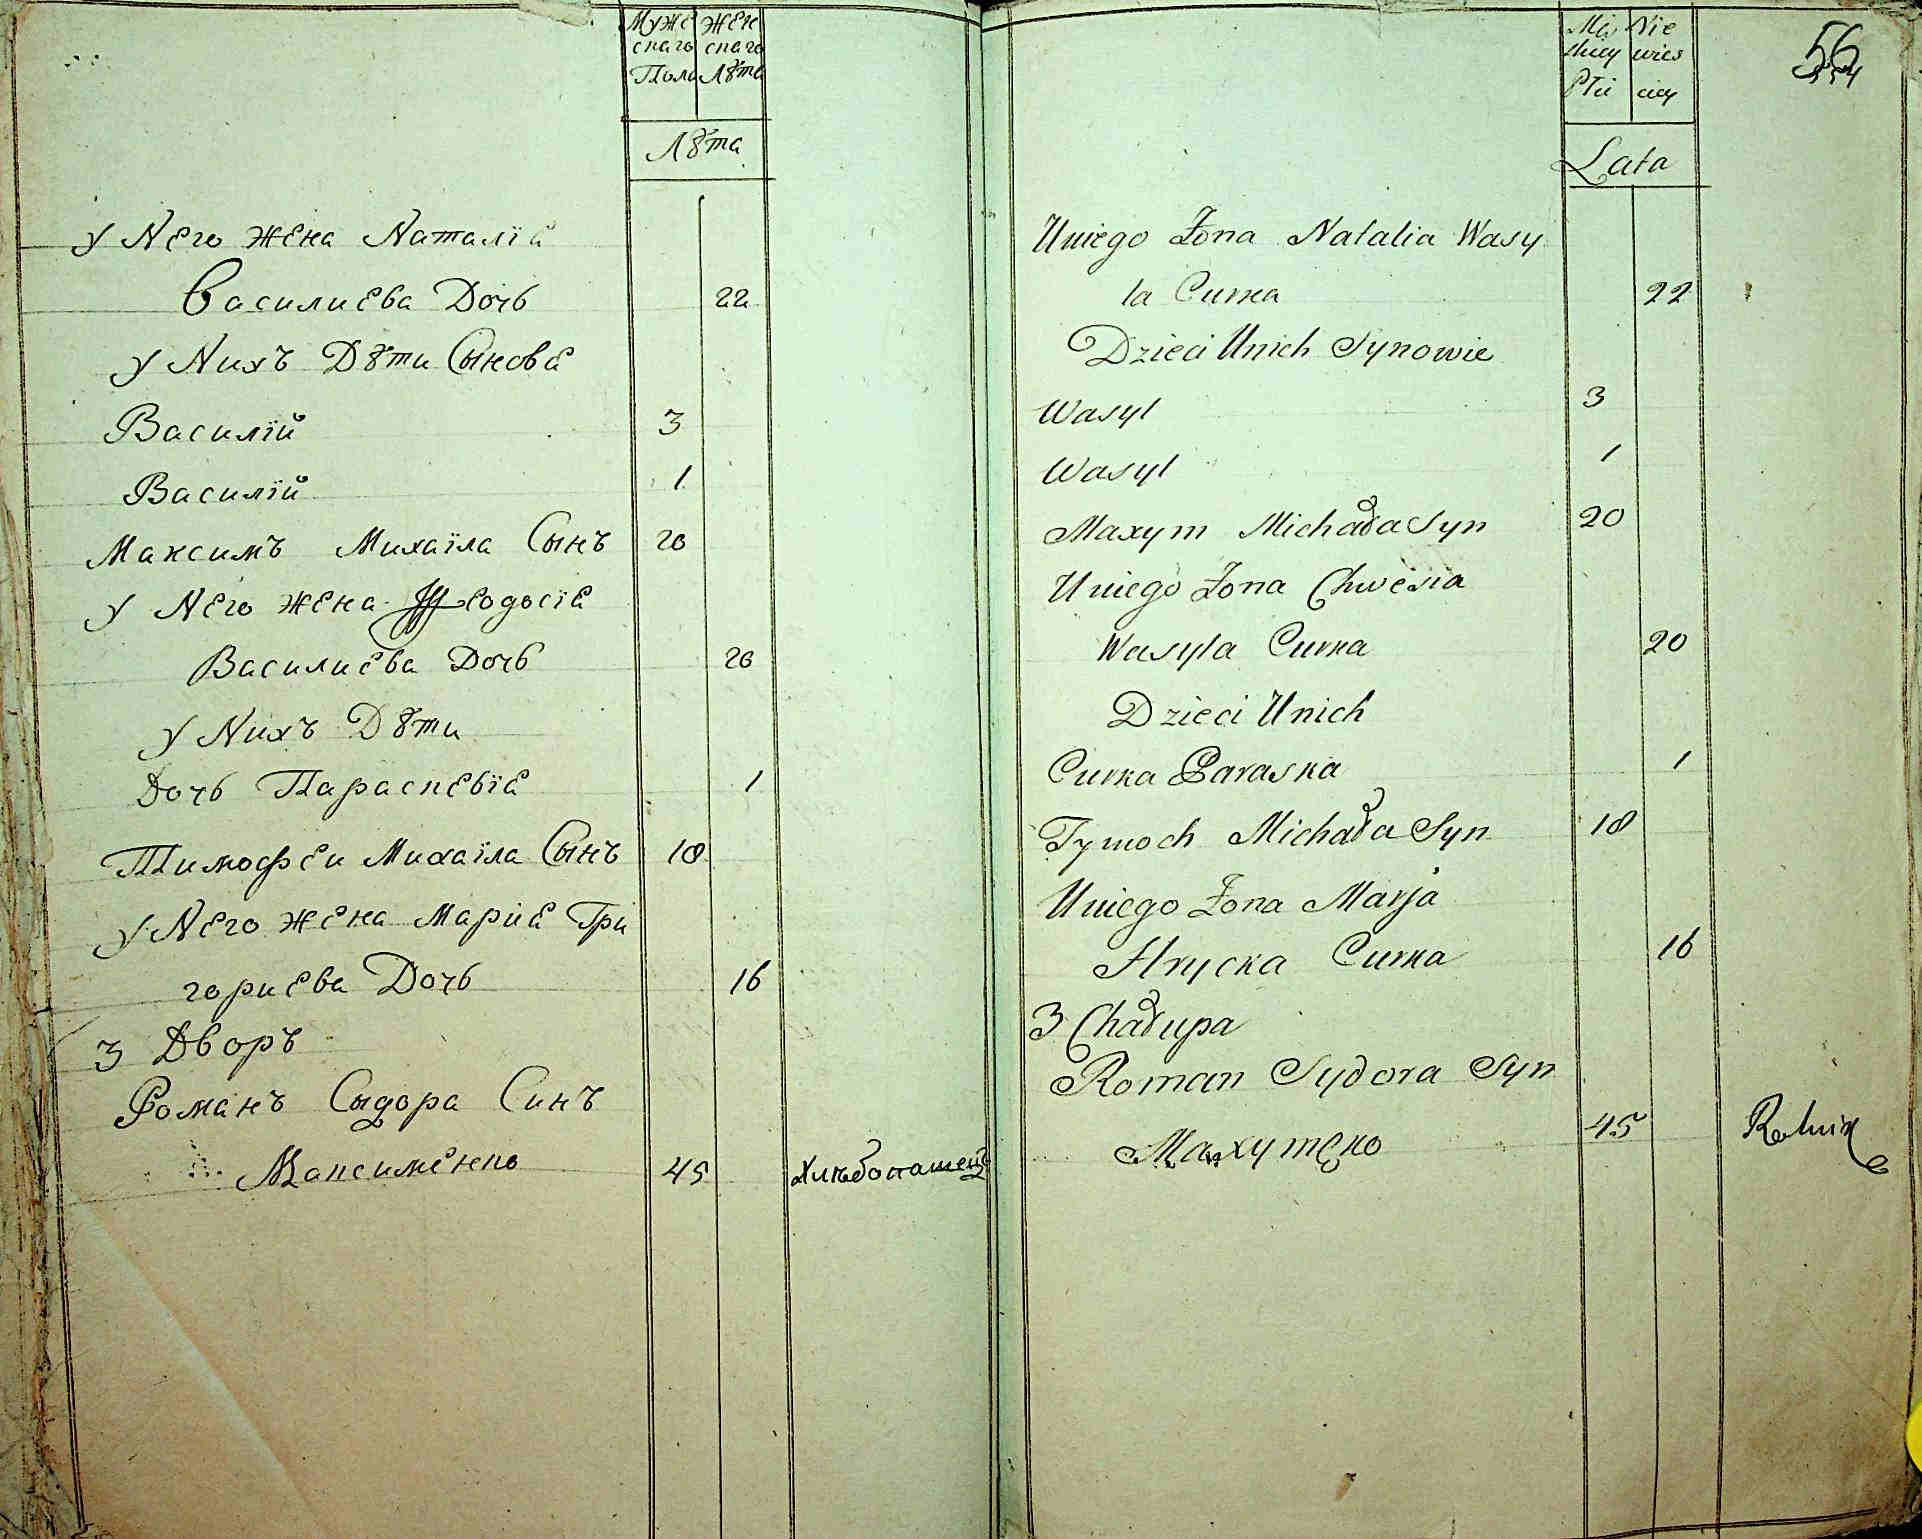 Муже Жен
скаго скаго
Пола Лѣта
Лѣта
У Него жена Наталіа
Василиева Дочь 22
у Нихъ Дѣти Сынова
Василій 3
Василій 1
Максимъ Михаїла Сынъ 20
у Него жена Феодосїа
Василиева Дочь 20
у Нихъ Дѣти
Дочь Параскевїа 1
Тимофеи Михаїла Сынъ 18
у Него жена Маріа Гри
гориева Дочь 16
3 Дворъ
Романъ Сыдора Синъ
Максименко 45 Хлѣбопашецъ
56
Męz Nie
skiey wies
Płci ciey
Lata
Uniego Żona Natalia Wasy
la Curka 22
Dzieci Unich Synowie
Wasyl 3
Wasyl 1
Maxym Michała Syn 20
Uniego Żona Chwesia
Wasyla Curka 20
Dzieci Unich
Curka Paraska 1
Tymoch Michała Syn 18
Uniego Żona Marja
Hrycka Curka 16
3 Chałupa
Roman Sydora Syn
Maxymęko 45 Rolnik